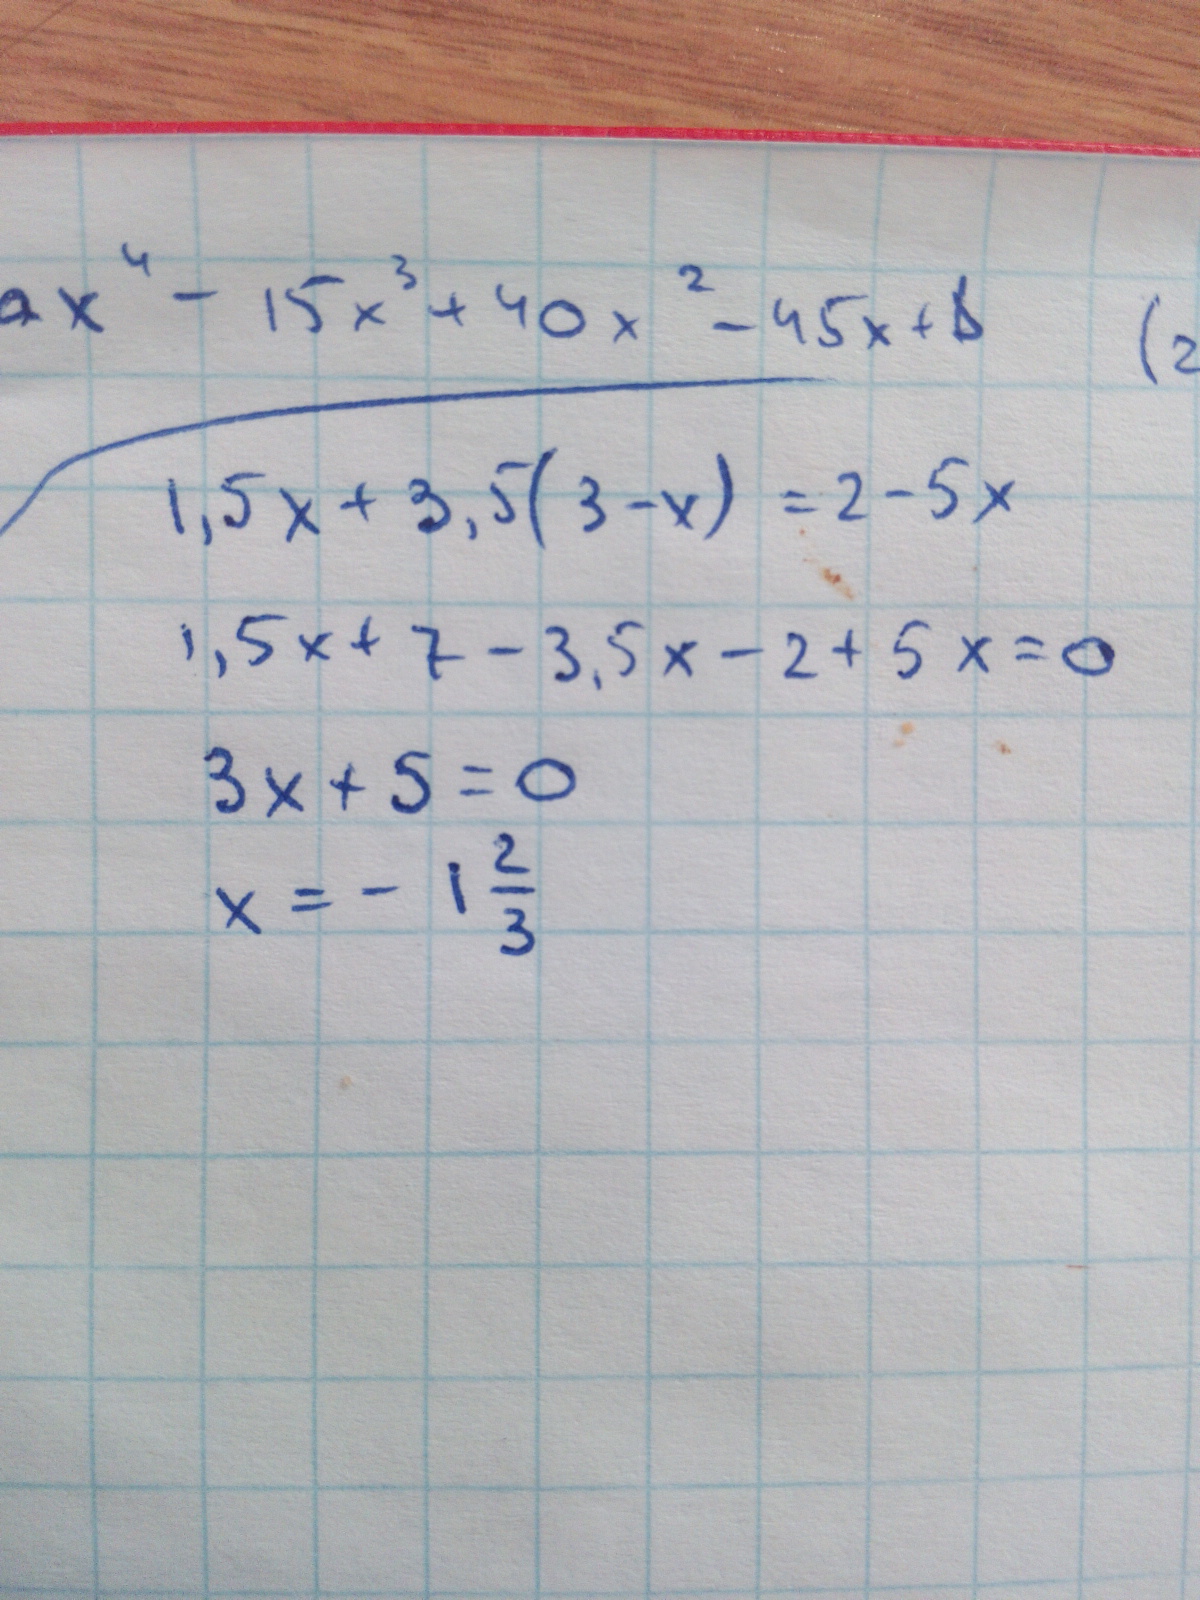 ax⁴ - 15x³ + 40x² - 45x + b (2
1,5x + 3,5(3-x) = 2-5x
1,5x + 7 - 3,5x - 2 + 5x = 0
3x + 5 = 0
x = - 1 2/3